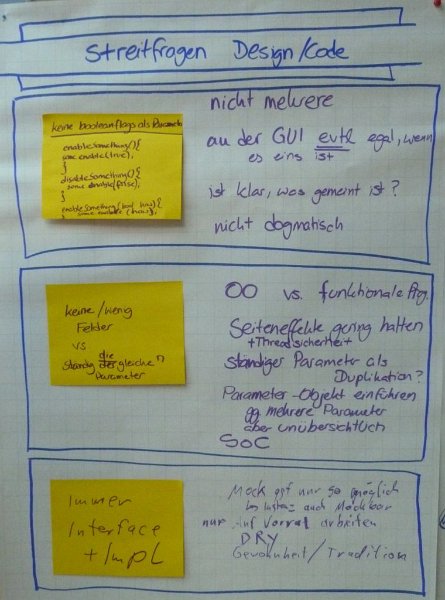 Streitfragen Design/Code
keine booleanflags als Parameter
enableSomething(){
some.enable(true);
}
disableSomething(){
some.enable(false);
}
enableSomething(bool
nicht mehrere
an der GUI evtl egal, wenn
es eins ist
ist klar, was gemeint ist?
nicht dogmatisch
keine/wenig
Felder
vs.
ständig die gleichen
Parameter
OO vs. funktionale Prog.
Seiteneffekte gering halten
+Threadsicherheit
ständiger Parameter als
Duplikation?
Parameter-Objekt einführen
gg mehrere Parameter
aber unübersichtlich
SoC
Immer
Interface
+ Impl
Mock ggf nur so möglich
auch Mockbar
nur auf Vorrat arbeiten
DRY
Gewohnheit/Tradition